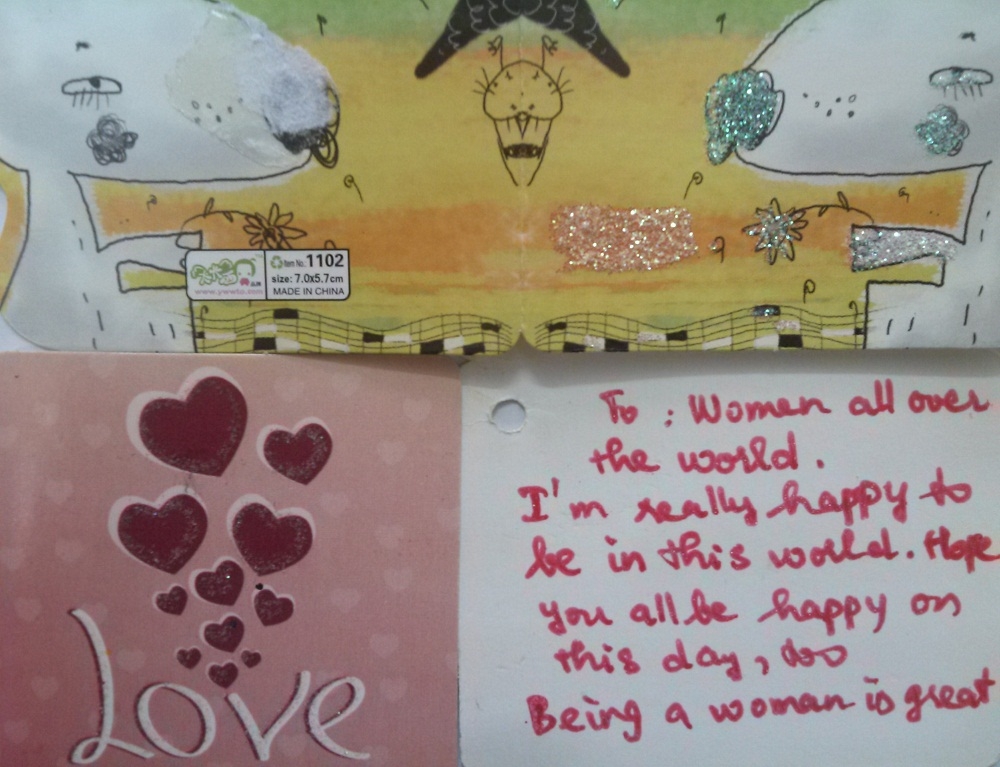 Item No.: 1102
size: 7.0x5.7cm
www.ywwta.com MADE IN CHINA
Love
To : Women all over
the world.
I'm really happy to
be in this world. Hope
you all be happy on
this day, too
Being a woman is great